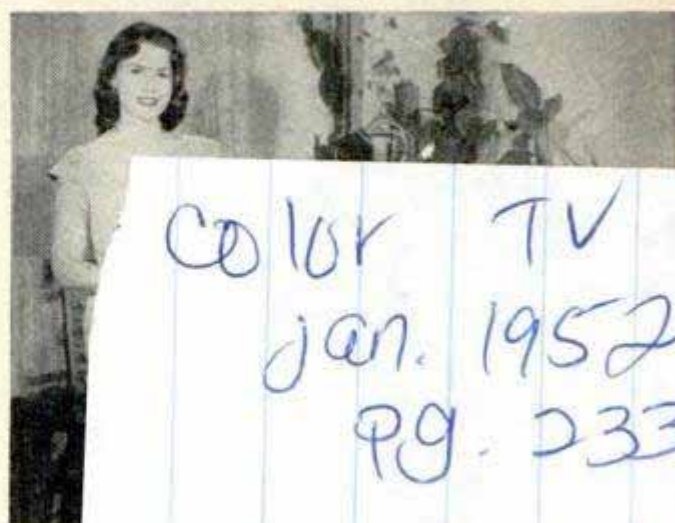 Color TV
jan. 1952
pg. 233